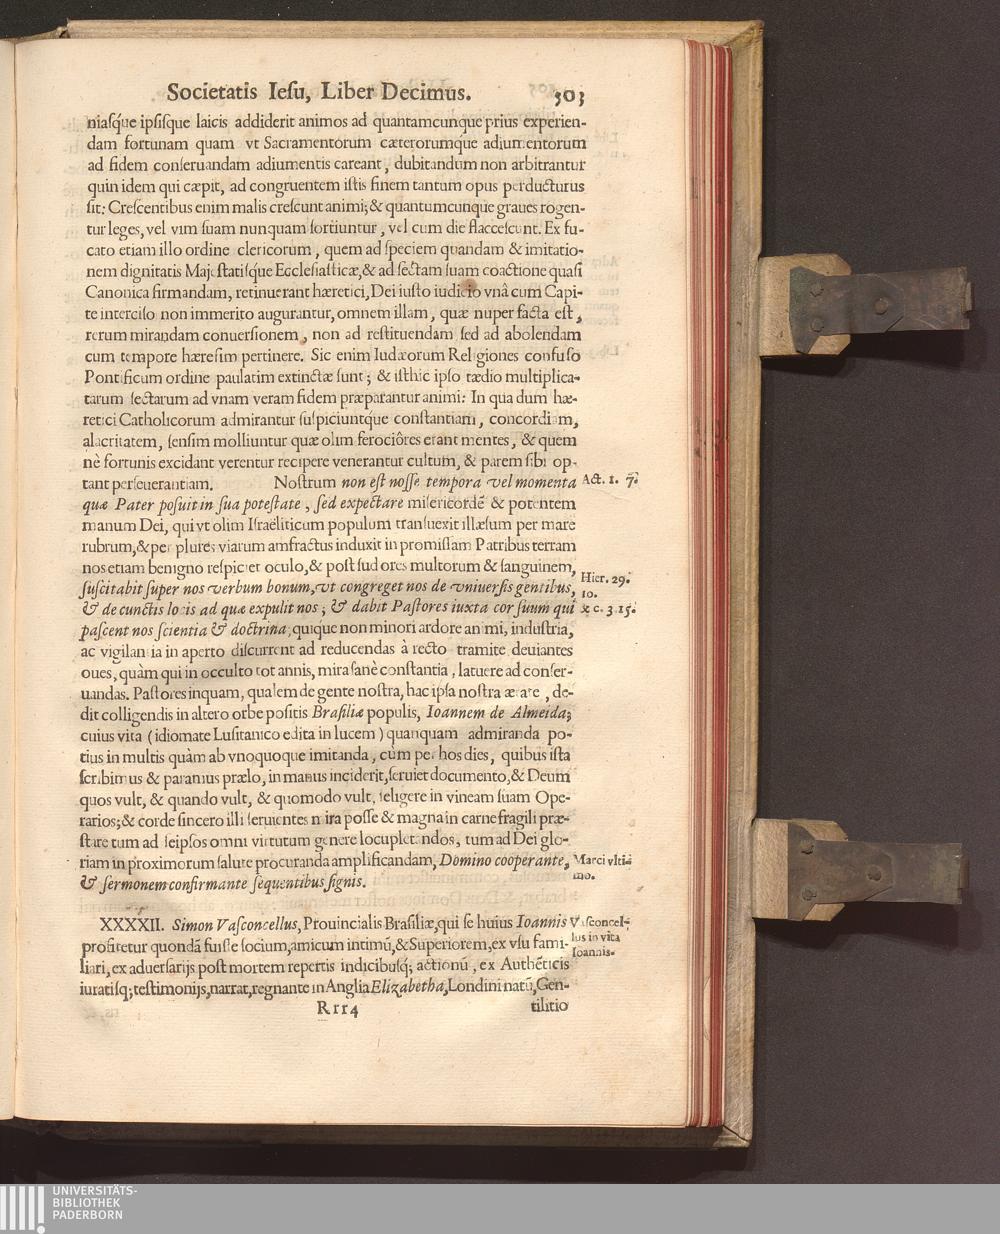 Societatis Ieſu, Liber Decimus. 503
niaſq́ue ipſiſque laicis addiderit animos ad quantamcunque prius experien-
dam fortunam quam vt Sacramentorum cæterorumq́ue adiumentorum
ad fidem conſeruandam adiumentis careant, dubitandum non arbitrantur
quin idem qui cæpit, ad congruentem iſtis finem tantum opus perducturus
ſit: Creſcentibus enim malis creſcunt animi; & quantumcunque graues rogen-
tur leges, vel vim ſuam nunquam ſortiuntur, vel cum die flacceſcunt. Ex fu-
cato etiam illo ordine clericorum, quem ad ſpeciem quandam & imitatio-
nem dignitatis Majeſtatiſque Eccleſiaſticæ, & ad ſectam ſuam coactione quaſi
Canonica firmandam, retinuerant hæretici, Dei iuſto iudicio vnâ cum Capi-
te interciſo non immerito augurantur, omnem illam, quæ nuper facta eſt,
rerum mirandam conuerſionem, non ad reſtituendam ſed ad abolendam
cum tempore hæreſim pertinere. Sic enim Iudæorum Religiones confuſo
Pontificum ordine paulatim extinctæ ſunt; & iſthic ipſo tædio multiplica-
tarum ſectarum ad vnam veram fidem præparantur animi: In qua dum hæ-
retici Catholicorum admirantur ſuſpiciuntq́ue conſtantiam, concordiam,
alacritatem, ſenſim molliuntur quæ olim ferociôres erant mentes, & quem
nè fortunis excidant verentur recipere venerantur cultum, & parem ſibi op-
tant perſeuerantiam. Noſtrum non eſt noſſe tempora vel momenta Act. 1. 7.
quæ Pater poſuit in ſua poteſtate, ſed expectare miſericordē & potentem
manum Dei, qui vt olim Iſraëliticum populum tranſuexit illæſum per mare
rubrum, & per plures viarum amfractus induxit in promiſſam Patribus terram
nos etiam benigno reſpiciet oculo, & poſt ſudores multorum & ſanguinem,
ſuſcitabit ſuper nos verbum bonum, vt congreget nos de vniuerſis gentibus, Hier. 29. 10.
& de cunctis locis ad quæ expulit nos; & dabit Paſtores iuxta cor ſuum qui & c. 3 15.
paſcent nos ſcientia & doctrina, quique non minori ardore animi, induſtria,
ac vigilantia in aperto diſcurrent ad reducendas à recto tramite deuiantes
oues, quàm qui in occulto tot annis, mira ſanè conſtantia, latuere ad conſer-
uandas. Paſtores inquam, qualem de gente noſtra, hac ipſa noſtra ætate, de-
dit colligendis in altero orbe poſitis Braſiliæ populis, Ioannem de Almeida;
cuius vita (idiomate Luſitanico edita in lucem) quanquam admiranda po-
tius in multis quàm ab vnoquoque imitanda, cùm per hos dies, quibus iſta
ſcribimus & paramus prælo, in manus inciderit, ſeruiet documento, & Deum
quos vult, & quando vult, & quomodo vult, ſeligere in vineam ſuam Ope-
rarios; & corde ſincero illi ſeruientes mira poſſe & magna in carne fragili præ-
ſtare tum ad ſeipſos omni virtutum genere locupletandos, tum ad Dei glo-
riam in proximorum ſalute procuranda amplificandam, Domino cooperante, Marci vlti-
& ſermonem confirmante ſequentibus ſignis. mo.
XXXXII. Simon Vaſconcellus, Prouincialis Braſiliæ, qui ſe huius Ioannis Vaſconcel-
profitetur quondā fuiſſe ſocium, amicum intimū, & Superiorem, ex vſu fami- lus in vita
liari, ex aduerſarijs poſt mortem repertis indicibuſq; actionū, ex Authēticis Ioannis.
iuratiſq; teſtimonijs, narrat, regnante in Anglia Elizabetha, Londini natū, Gen-
Rrr4 tilitio
UNIVERSITÄTS-
BIBLIOTHEK
PADERBORN